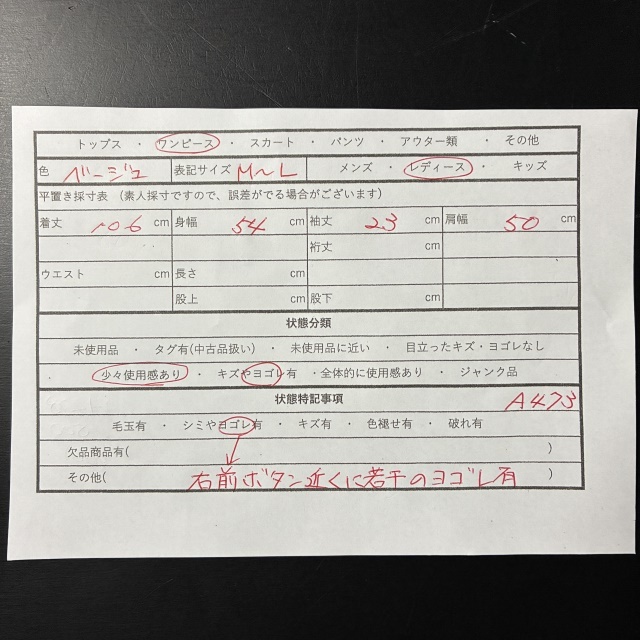 トップス ・ ワンピース ・ スカート ・ パンツ ・ アウター類 ・ その他
色 ベージュ 表記サイズ M〜L メンズ ・ レディース ・ キッズ
平置き採寸表 (素人採寸ですので、誤差がでる場合がございます)
着丈 106 cm 身幅 54 cm 袖丈 23 cm 肩幅 50 cm
裄丈 cm
ウエスト cm 長さ cm
股上 cm 股下 cm
状態分類
未使用品 ・ タグ有(中古品扱い) ・ 未使用品に近い ・ 目立ったキズ・ヨゴレなし
少々使用感あり ・ キズやヨゴレ有 ・全体的に使用感あり ・ ジャンク品
状態特記事項 A473
毛玉有 ・ シミやヨゴレ有 ・ キズ有 ・ 色褪せ有 ・ 破れ有
欠品商品有( )
その他( 右前ボタン近くに若干のヨゴレ有 )